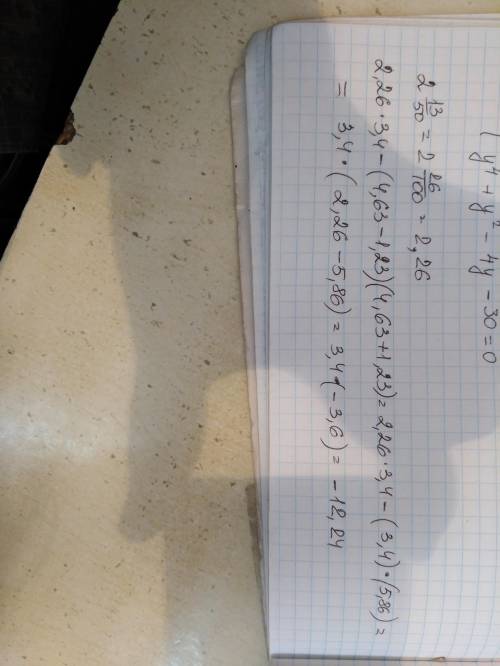 y⁴ + y² - 4y - 30 = 0
2 13/50 = 2 26/100 = 2,26
2,26 · 3,4 - (4,63 - 1,23)(4,63 + 1,23) = 2,26 · 3,4 - (3,4) · (5,86) =
= 3,4 · (2,26 - 5,86) = 3,4 · (-3,6) = -12,24